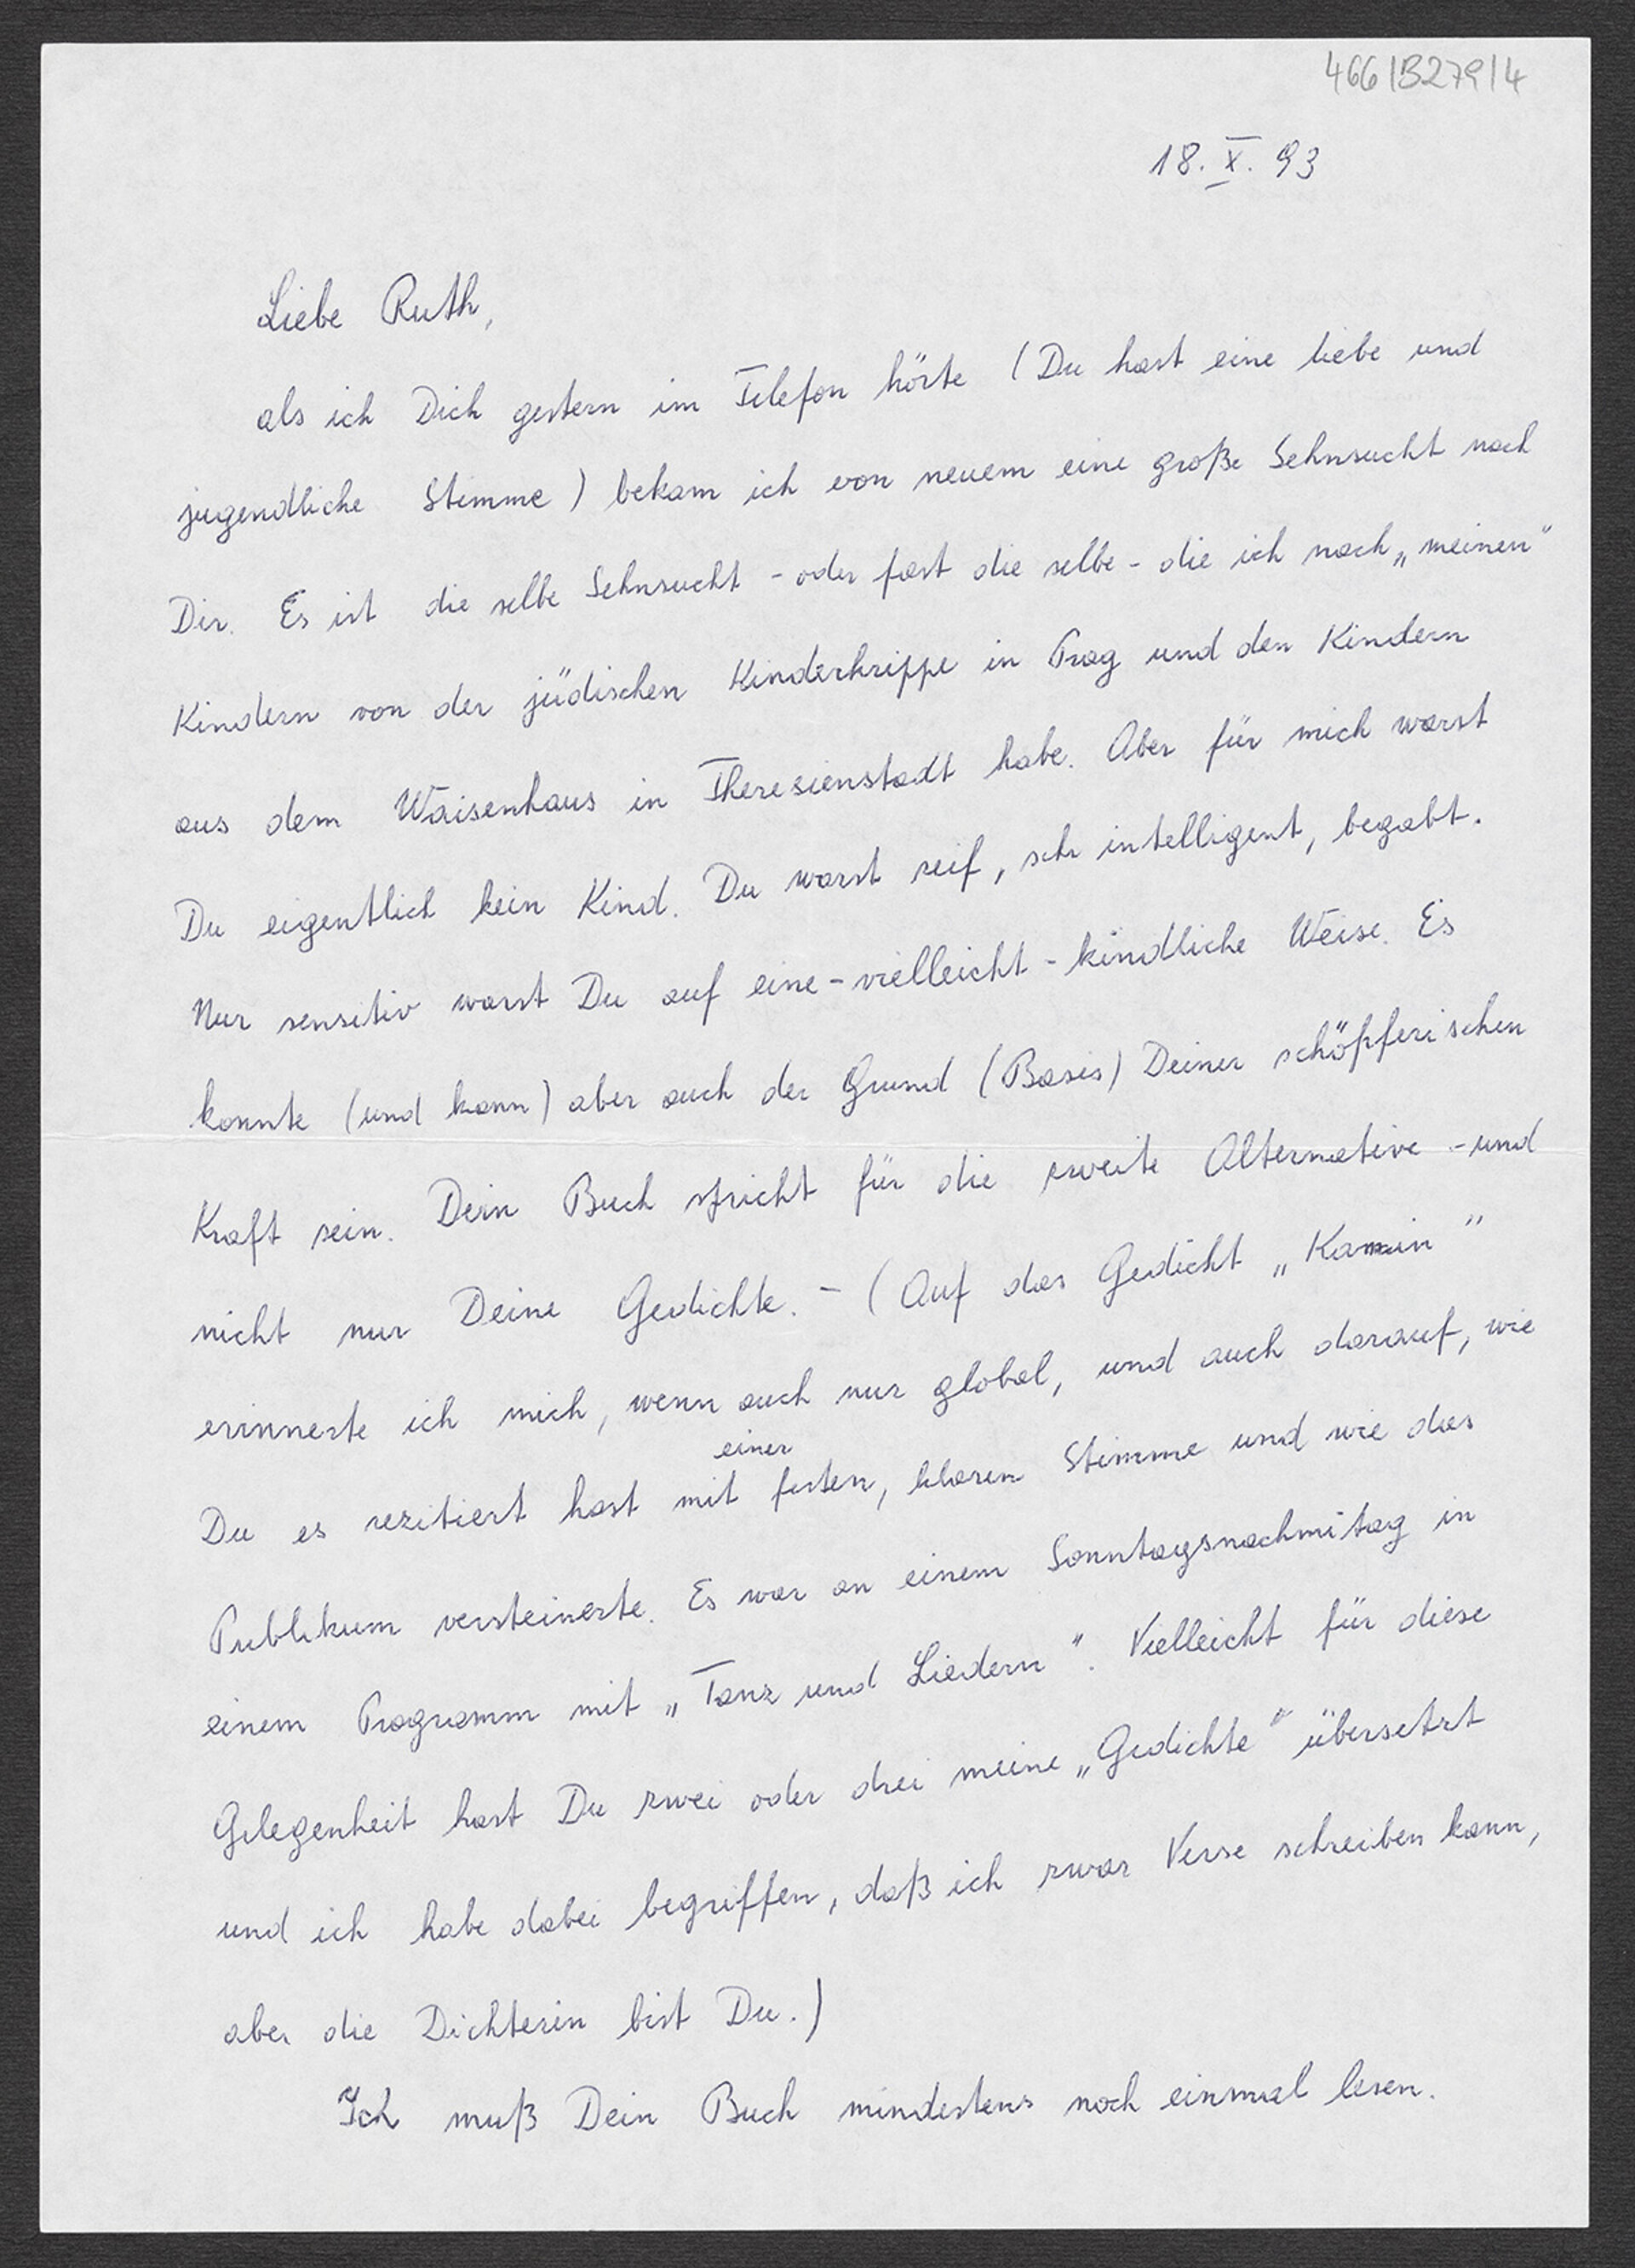 466/B279/4
18. X. 93
Liebe Ruth,
als ich Dich gestern im Telefon hörte (Du hast eine liebe und
jugendliche Stimme) bekam ich von neuem eine große Sehnsucht nach
Dir. Es ist die selbe Sehnsucht - oder fast die selbe - die ich nach „meinen“
Kindern von der jüdischen Kinderkrippe in Prag und den Kindern
aus dem Waisenhaus in Theresienstadt habe. Aber für mich warst
Du eigentlich kein Kind. Du warst reif, sehr intelligent, begabt.
Nur sensitiv warst Du auf eine - vielleicht - kindliche Weise. Es
konnte (und kann) aber auch der Grund (Basis) Deiner schöpferischen
Kraft sein. Dein Buch spricht für die zweite Alternative - und
nicht nur Deine Gedichte. - (Auf das Gedicht „Kamin“
erinnerte ich mich, wenn auch nur global, und auch darauf, wie
Du es rezitiert hast mit einer festen, klaren Stimme und wie das
Publikum versteinerte. Es war an einem Sonntagsnachmitag in
einem Programm mit „Tanz und Liedern“. Vielleicht für diese
Gelegenheit hast Du zwei oder drei meine „Gedichte“ übersetzt
und ich habe dabei begriffen, daß ich zwar Verse schreiben kann,
aber die Dichterin bist Du.)
Ich muß Dein Buch mindestens noch einmal lesen.